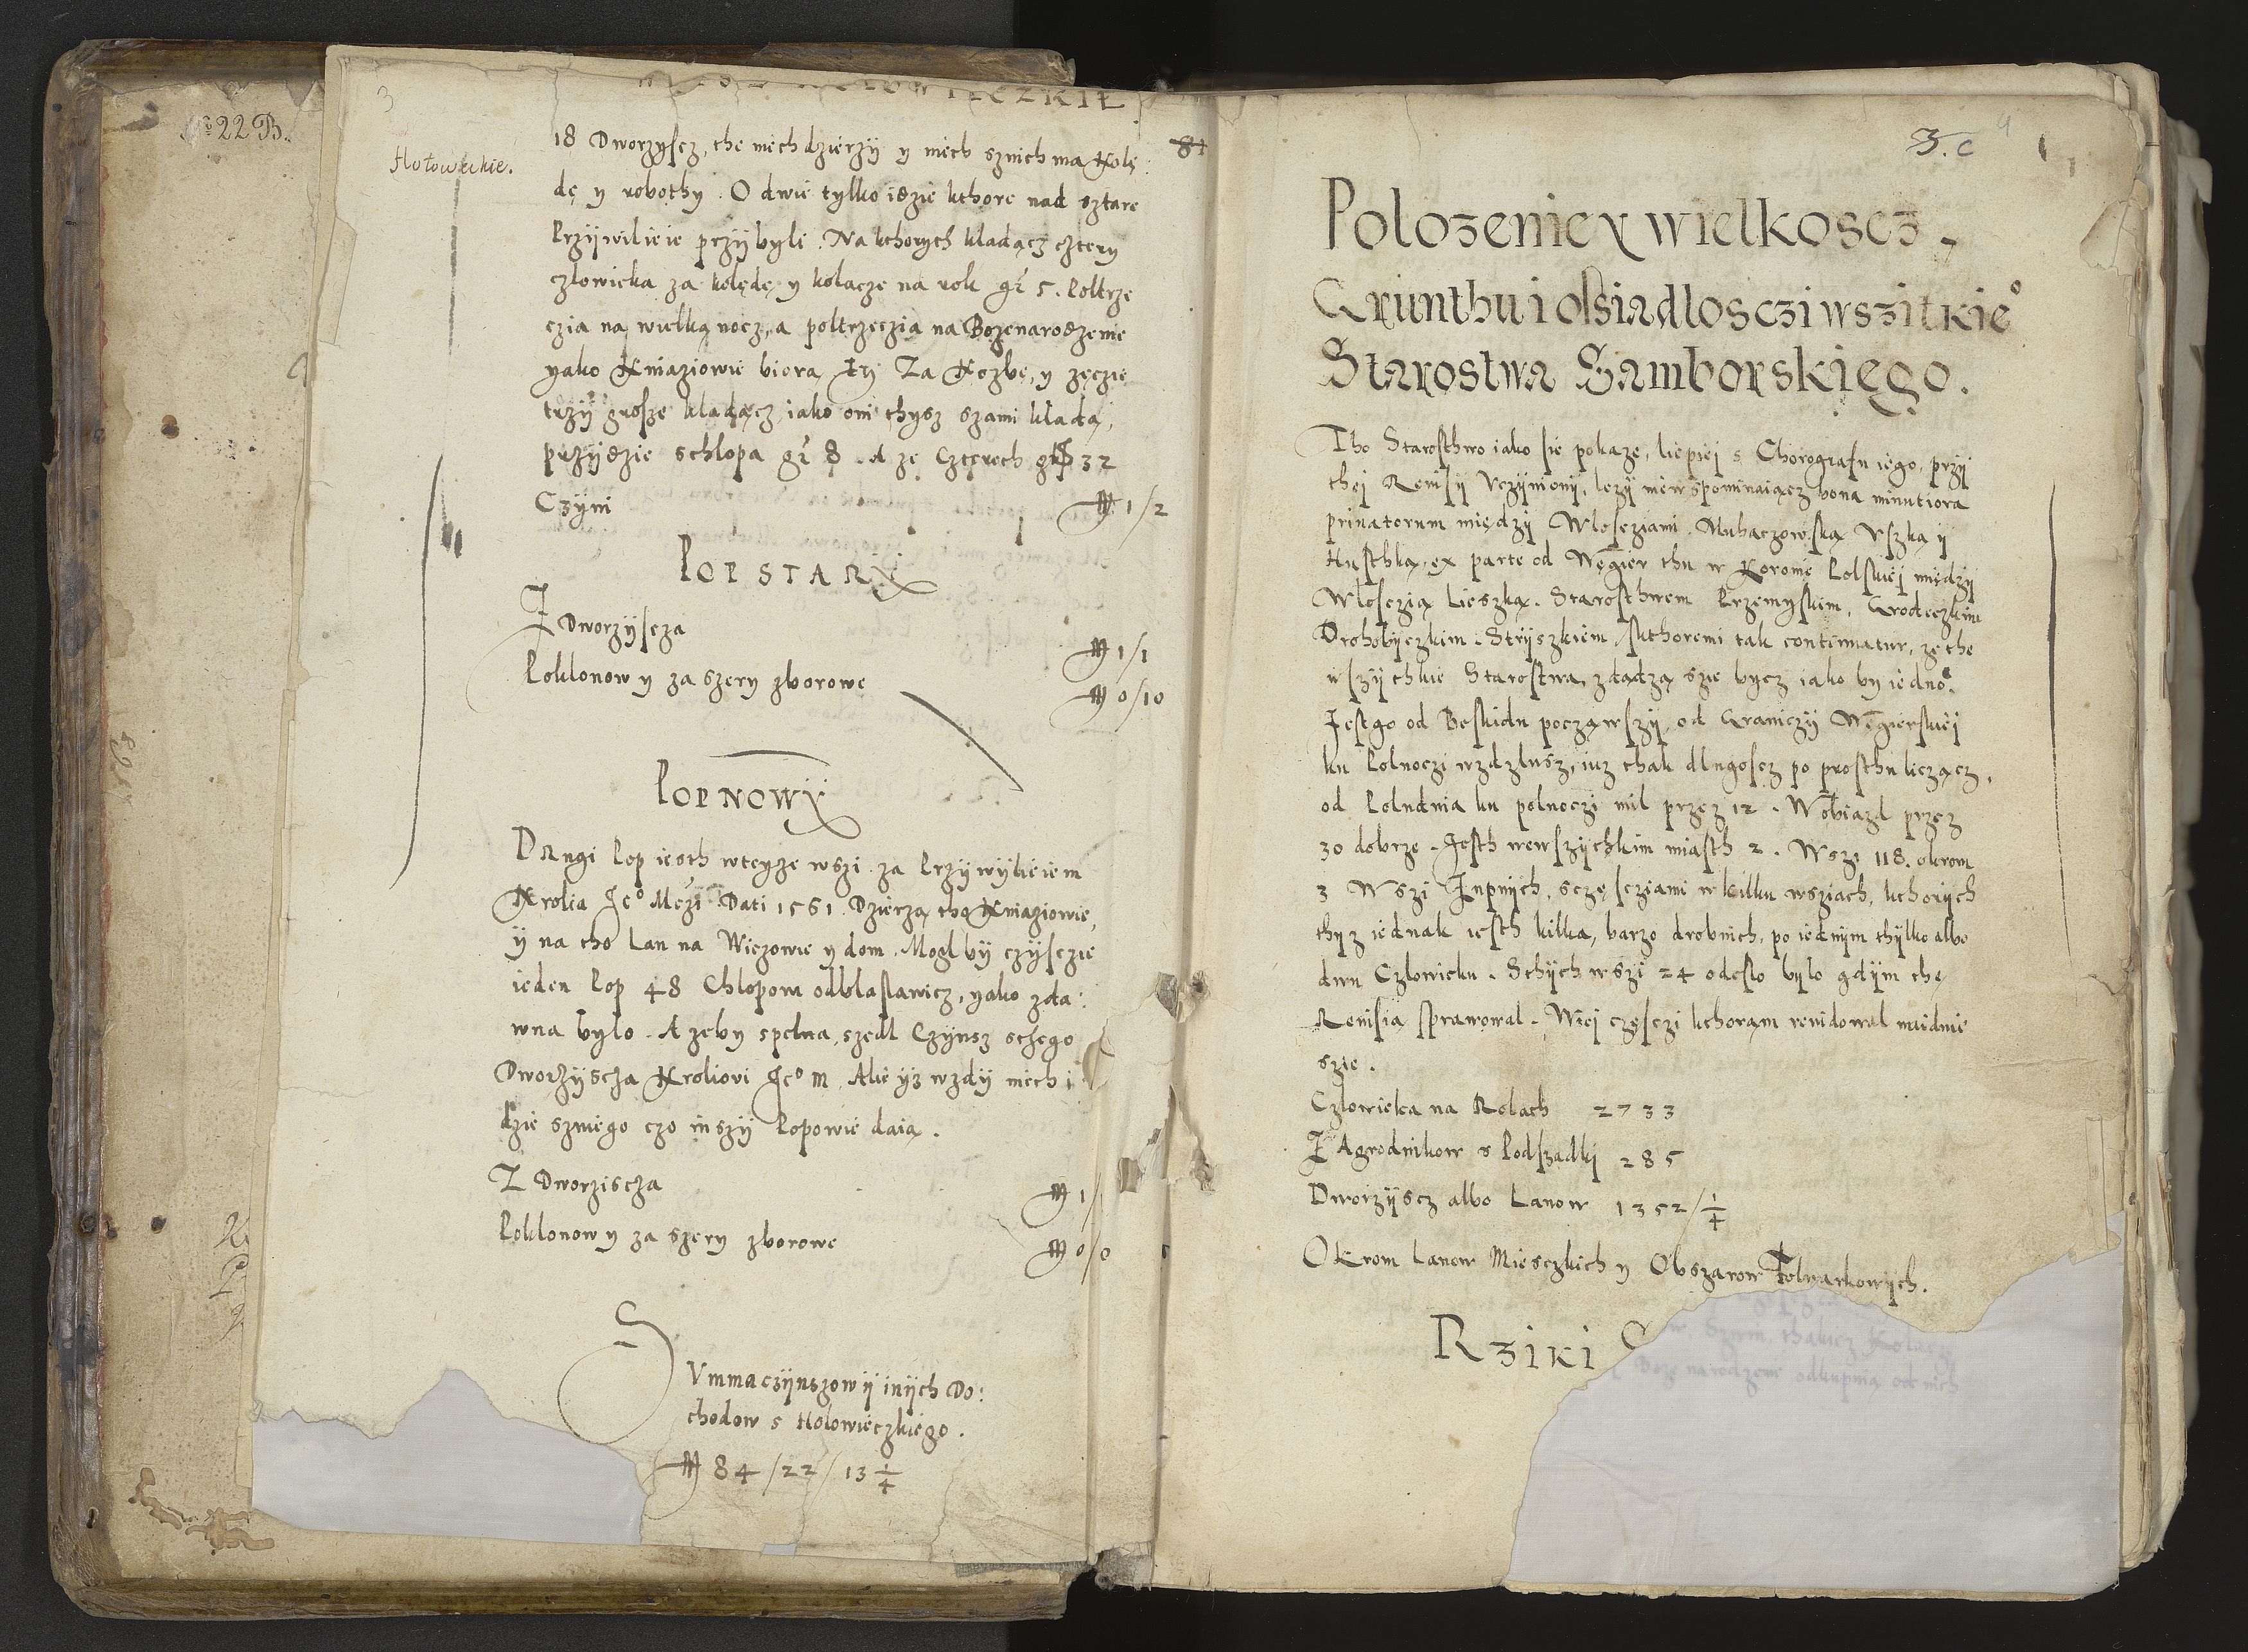 No 22 B.
3
Hołowieckie.
18 Dworzyscz, the niech dzierzÿ y niech sznich ma Kolę:
dę y robothy. O dwie tylko idzie kthore nad sztare
Przÿwilieie przÿbyli. Na kthorych kładącz cztery
człowieka za kolędę y kołacze na rok gr 5. Połtrze
czia na wielką nocz, a połtrzeczia na Bozenarodzenie
yako Kniaziowie biora
Za Kozbę, y zęczie
trzÿ grosze kladącz, iako oni thysz szami kłada,
przÿdzie schlopa gr 8. A ze Czterech gr 32
Czÿni M 1/2
POP STARY
Z Dworzÿscza M 1/1
Poklonow y za szery zborowe M 0/10
POP NOWY
Drugi Pop iesth wteyze wszi za Przÿwÿlieiem
Krolia Jeo Mczi Dati 1561. Dzierzą tho Kniaziowie,
ÿ na tho Lan na Wiezowie y dom. Moglbÿ czÿsczie
ieden Pop 48 Chlopom odblaslawicz, yako zda:
wna bylo. A zeby spelna szedl Czÿnsz sthego
Dworzÿscza Kroliovi Jeo M. Alie ÿz wzdÿ niech i
dzie szniego czo inszÿ Popowie daią.
Z Dworziscza M 1/
Poklonow y za szery zborowe M 0/0
SVmma czÿnszow ÿ inÿch Do:
chodow s Hołowieczkiego.
M 84/22/13 1/4
81
3. c
4
Polozenie y wielkoscz
Grunthu i osiadlosczi wszitkieo
Starostwa Samborskiego.
Tho Starosthwo iako sie pokaze, liepiej s Chorografii iego, przÿ
thej Rewisÿ Vczÿnionÿ, lezÿ niewspominaiącz bona minutiora
privatorum międzÿ Wlosciami Muhaczowską Vszką ÿ
Husthką, ex parte od Węgier thu w Koronie Polskiej międzÿ
Wlosczią Lieszką. Starosthwem Przemyskim, Grodeczkim
Drohobÿczkim. Strÿszkiem, skthoremi tak continuatur, ze the
wszÿthkie Starostwa, zdadzą szie bycz iako by iedno.
Jestgo od Beskidu począwszÿ, od Graniczÿ Węgierskiej
ku Polnoczi wzdzlusz, iuz thak dlugoscz po prosthu liczącz,
od Poludnia ku polnoczi mil przez 12. Wobiazd przez
30 dobrze. Jesth wewszÿthkim miasth 2. Wszi 118. okrom
3 Wszi Zupnÿch, sczęsciami w kilku wsziach, kthorÿch
thÿz iednak iesth kilka, barzo drobnich, po iednÿm thÿlko albo
dwu Człowieku. Sthÿch wszi 24 odeslo bylo gdÿm thę
Rewisią sprawowal. Wtej częsczi kthorąm rewidowal naidnie
szie.
Czlowieka na Rolach 2733
ZAgrodnikow s Podszadkÿ 285
Dworzÿscz albo Lanow 1352/ 1/4
OKrom Lanow Miesczkich y Obszarow Folwarkowÿch.
Rziki